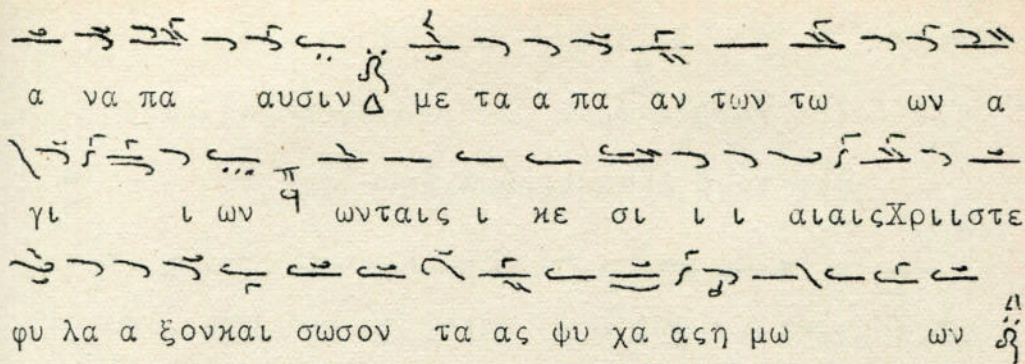 α να πα αυσιν Δ με τα α πα αν των τω ων α
γι ι ων π ωνταις ι κε σι ι ι αιαιςΧριιστε
φυ λα α ξονκαι σωσον τα ας ψυ χα αςη μω ων